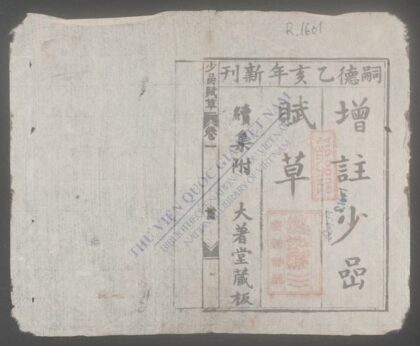 R.1601
嗣德乙亥年新刊
增註少嵒
賦草
續集附 大著堂藏板
少嵒賦草
卷一
THƯ VIỆN QUỐC GIA VIỆT NAM
NATIONAL LIBRARY OF VIETNAM